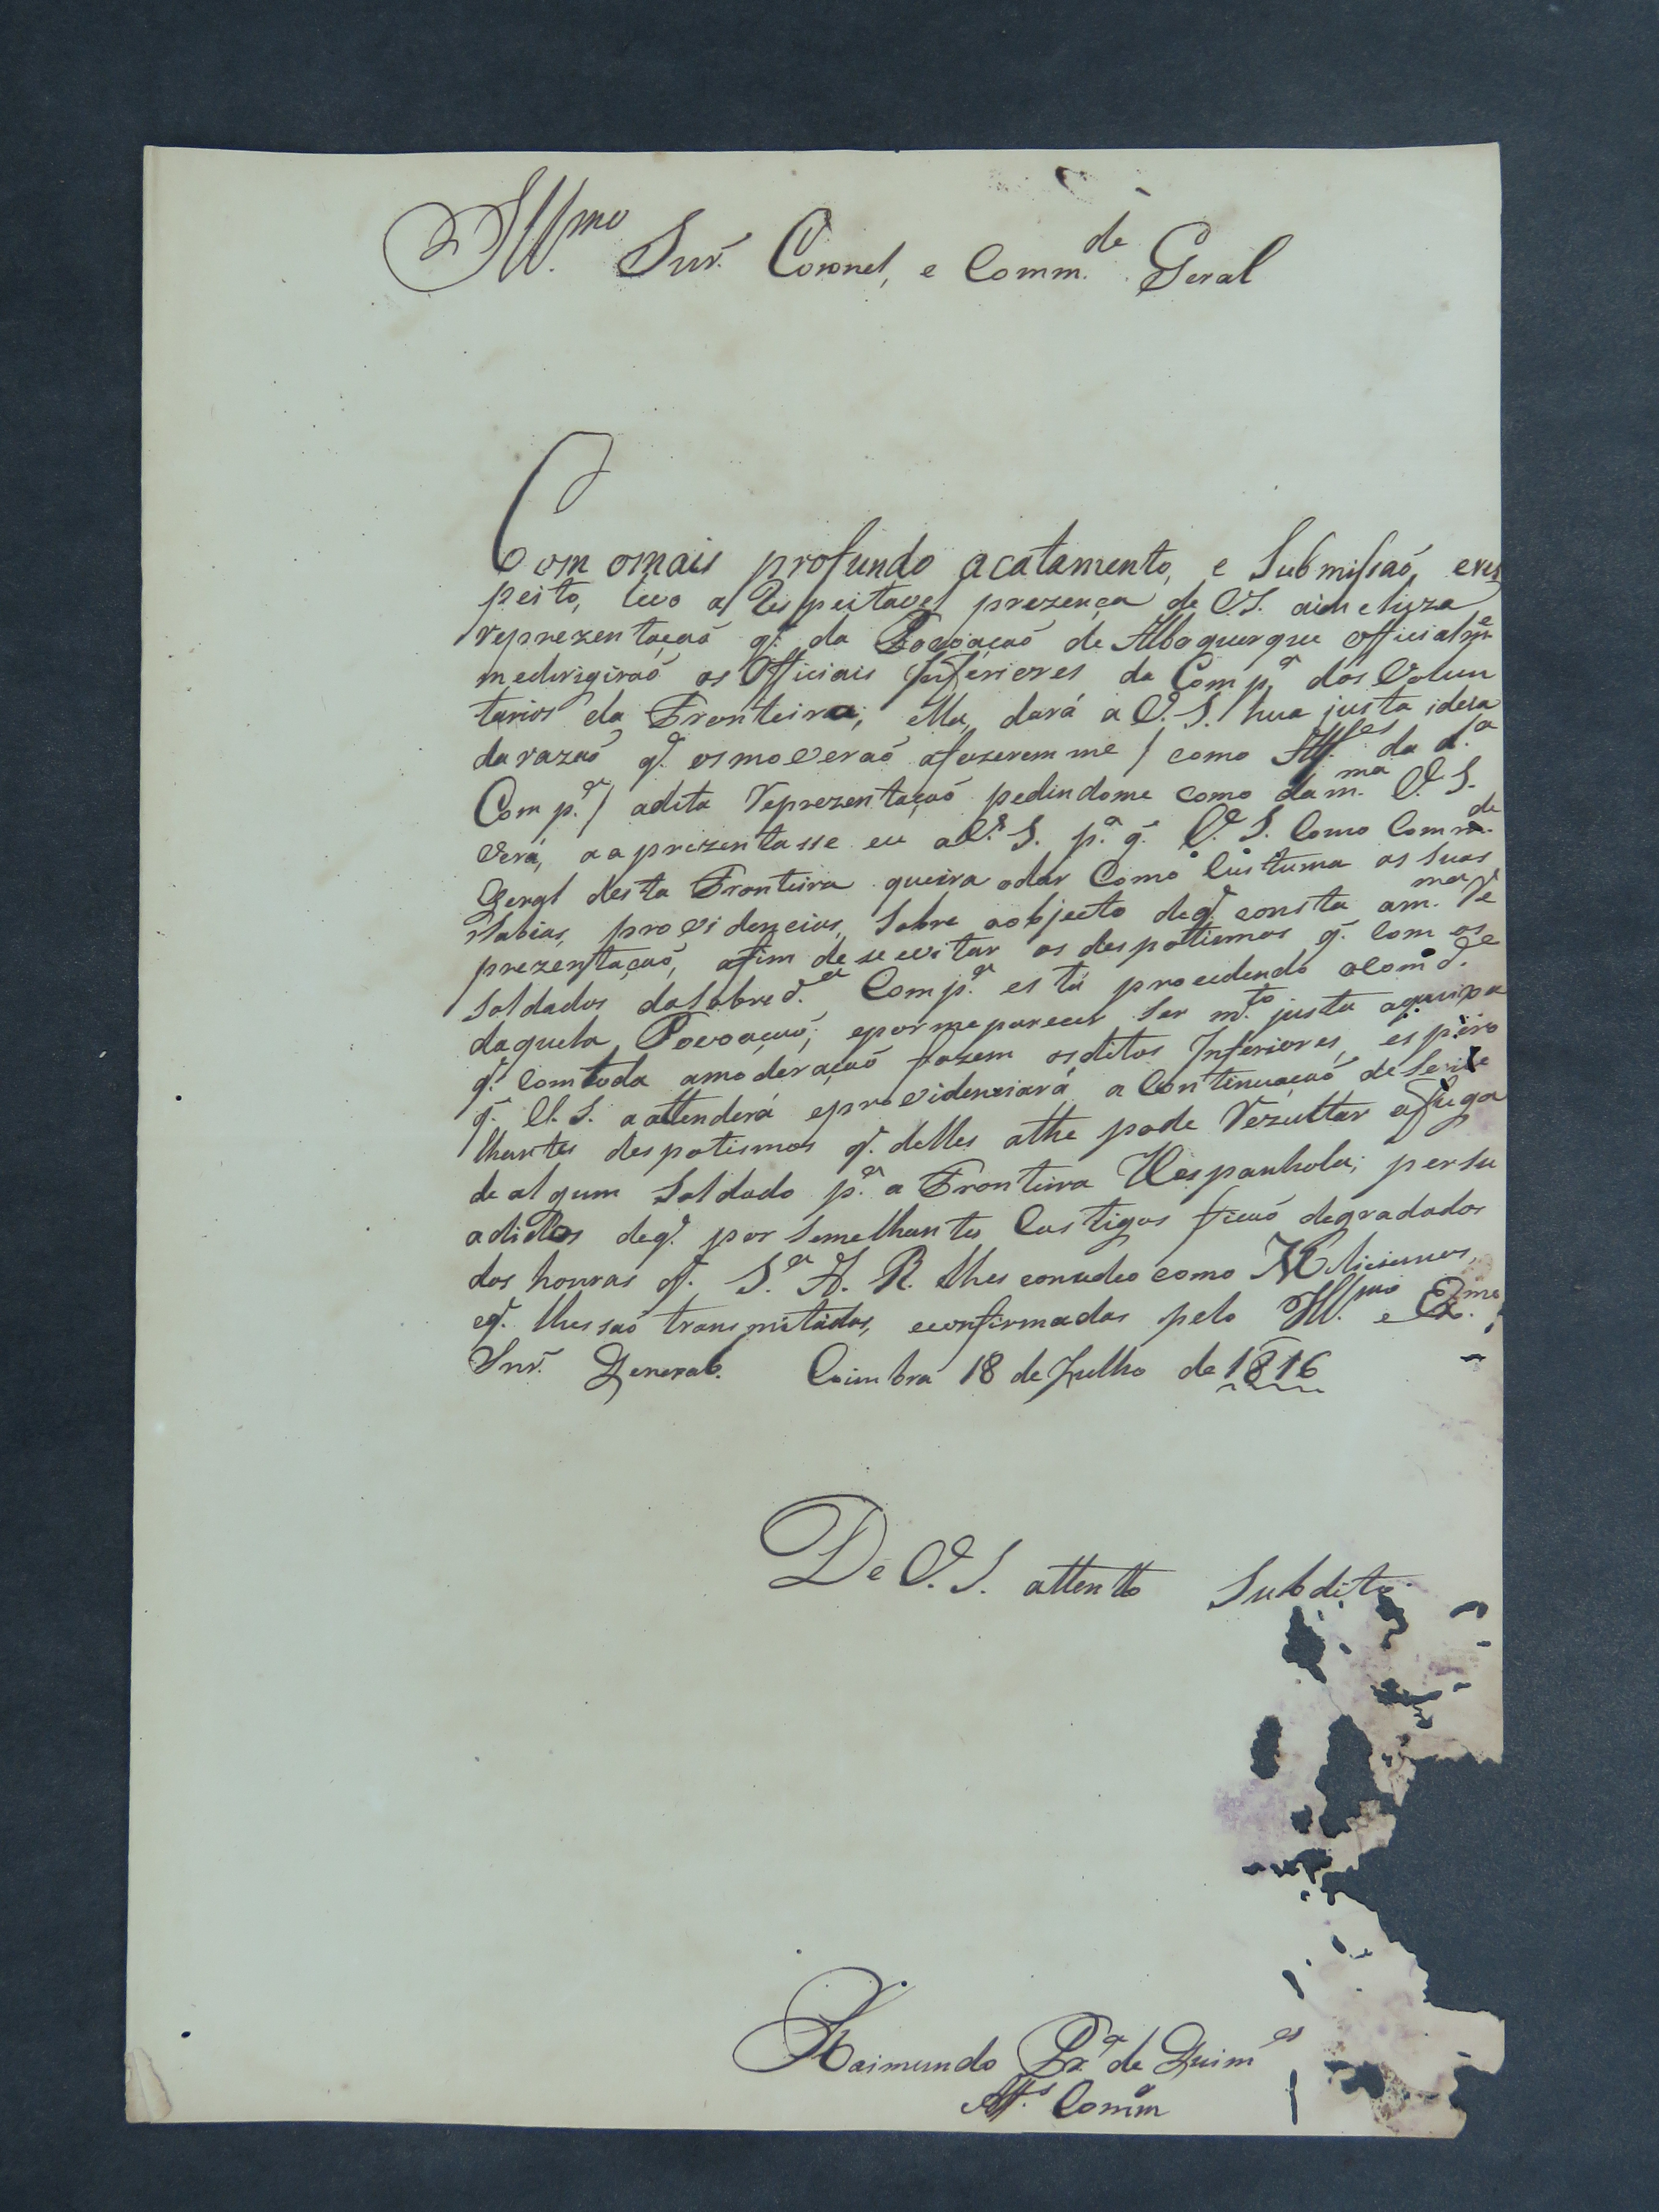 Ill.mo Snr. Coronel, e Comm.de Geral
Com omais profundo acatamento, e Submissaõ, eres
peito, levo a Respeitavel prezença de V.S. ainclûza
reprezentaçaõ q.' da Povoaçaõ de Alboquerque officialm.e
medirigiraõ os Officiais Inferiores da Comp.a dos Volun
tarios da Fronteira; ella, dará a V.S. hua justa ideia
darazaõ q.' osmoveraõ afazerem me / como Alf.es da d.ta
Comp.a / adita Reprezentaçaõ pedindome como dam.ma V.S.
verá, aaprezentasse eu aV.S. p.a q.' V.S. Como Comm.de
Geral desta Fronteira queira odar Como Custuma as suas
Sabias, providencias, Sobre aobjecto deq.' consta am.ma Re
prezentaçaõ, afim de se evitar os despotismos q.' Com os
Soldados daSobred.a Comp.a está procedendo oCom.de
daquela Povoaçaõ; epormeparecer Ser m.to justa aqueixa
q.' Comtoda amoderaçaõ fazem osditos Inferiores, espero
q.' V.S. aattenderá eprovidenciará a Continuaçaõ deSeme
lhantes despotismos q.' delles athe pode Rezultar afuga
de algum Soldado p.a a Fronteira Hespanhola; persu
adidos deq.' por Semelhantes Castigos ficaõ degradados
das honras q.' S.a A. R. lhes concedeo como Milicianos,
eq.' lhessaõ transmitidas, econfirmadas pelo Ill.mo e Ex.mo
Snr. General. Coimbra 18 de Julho de 1816
De V.S. attento Subdito
Raimundo Pr.a de Guim.es
Alf.s Comm